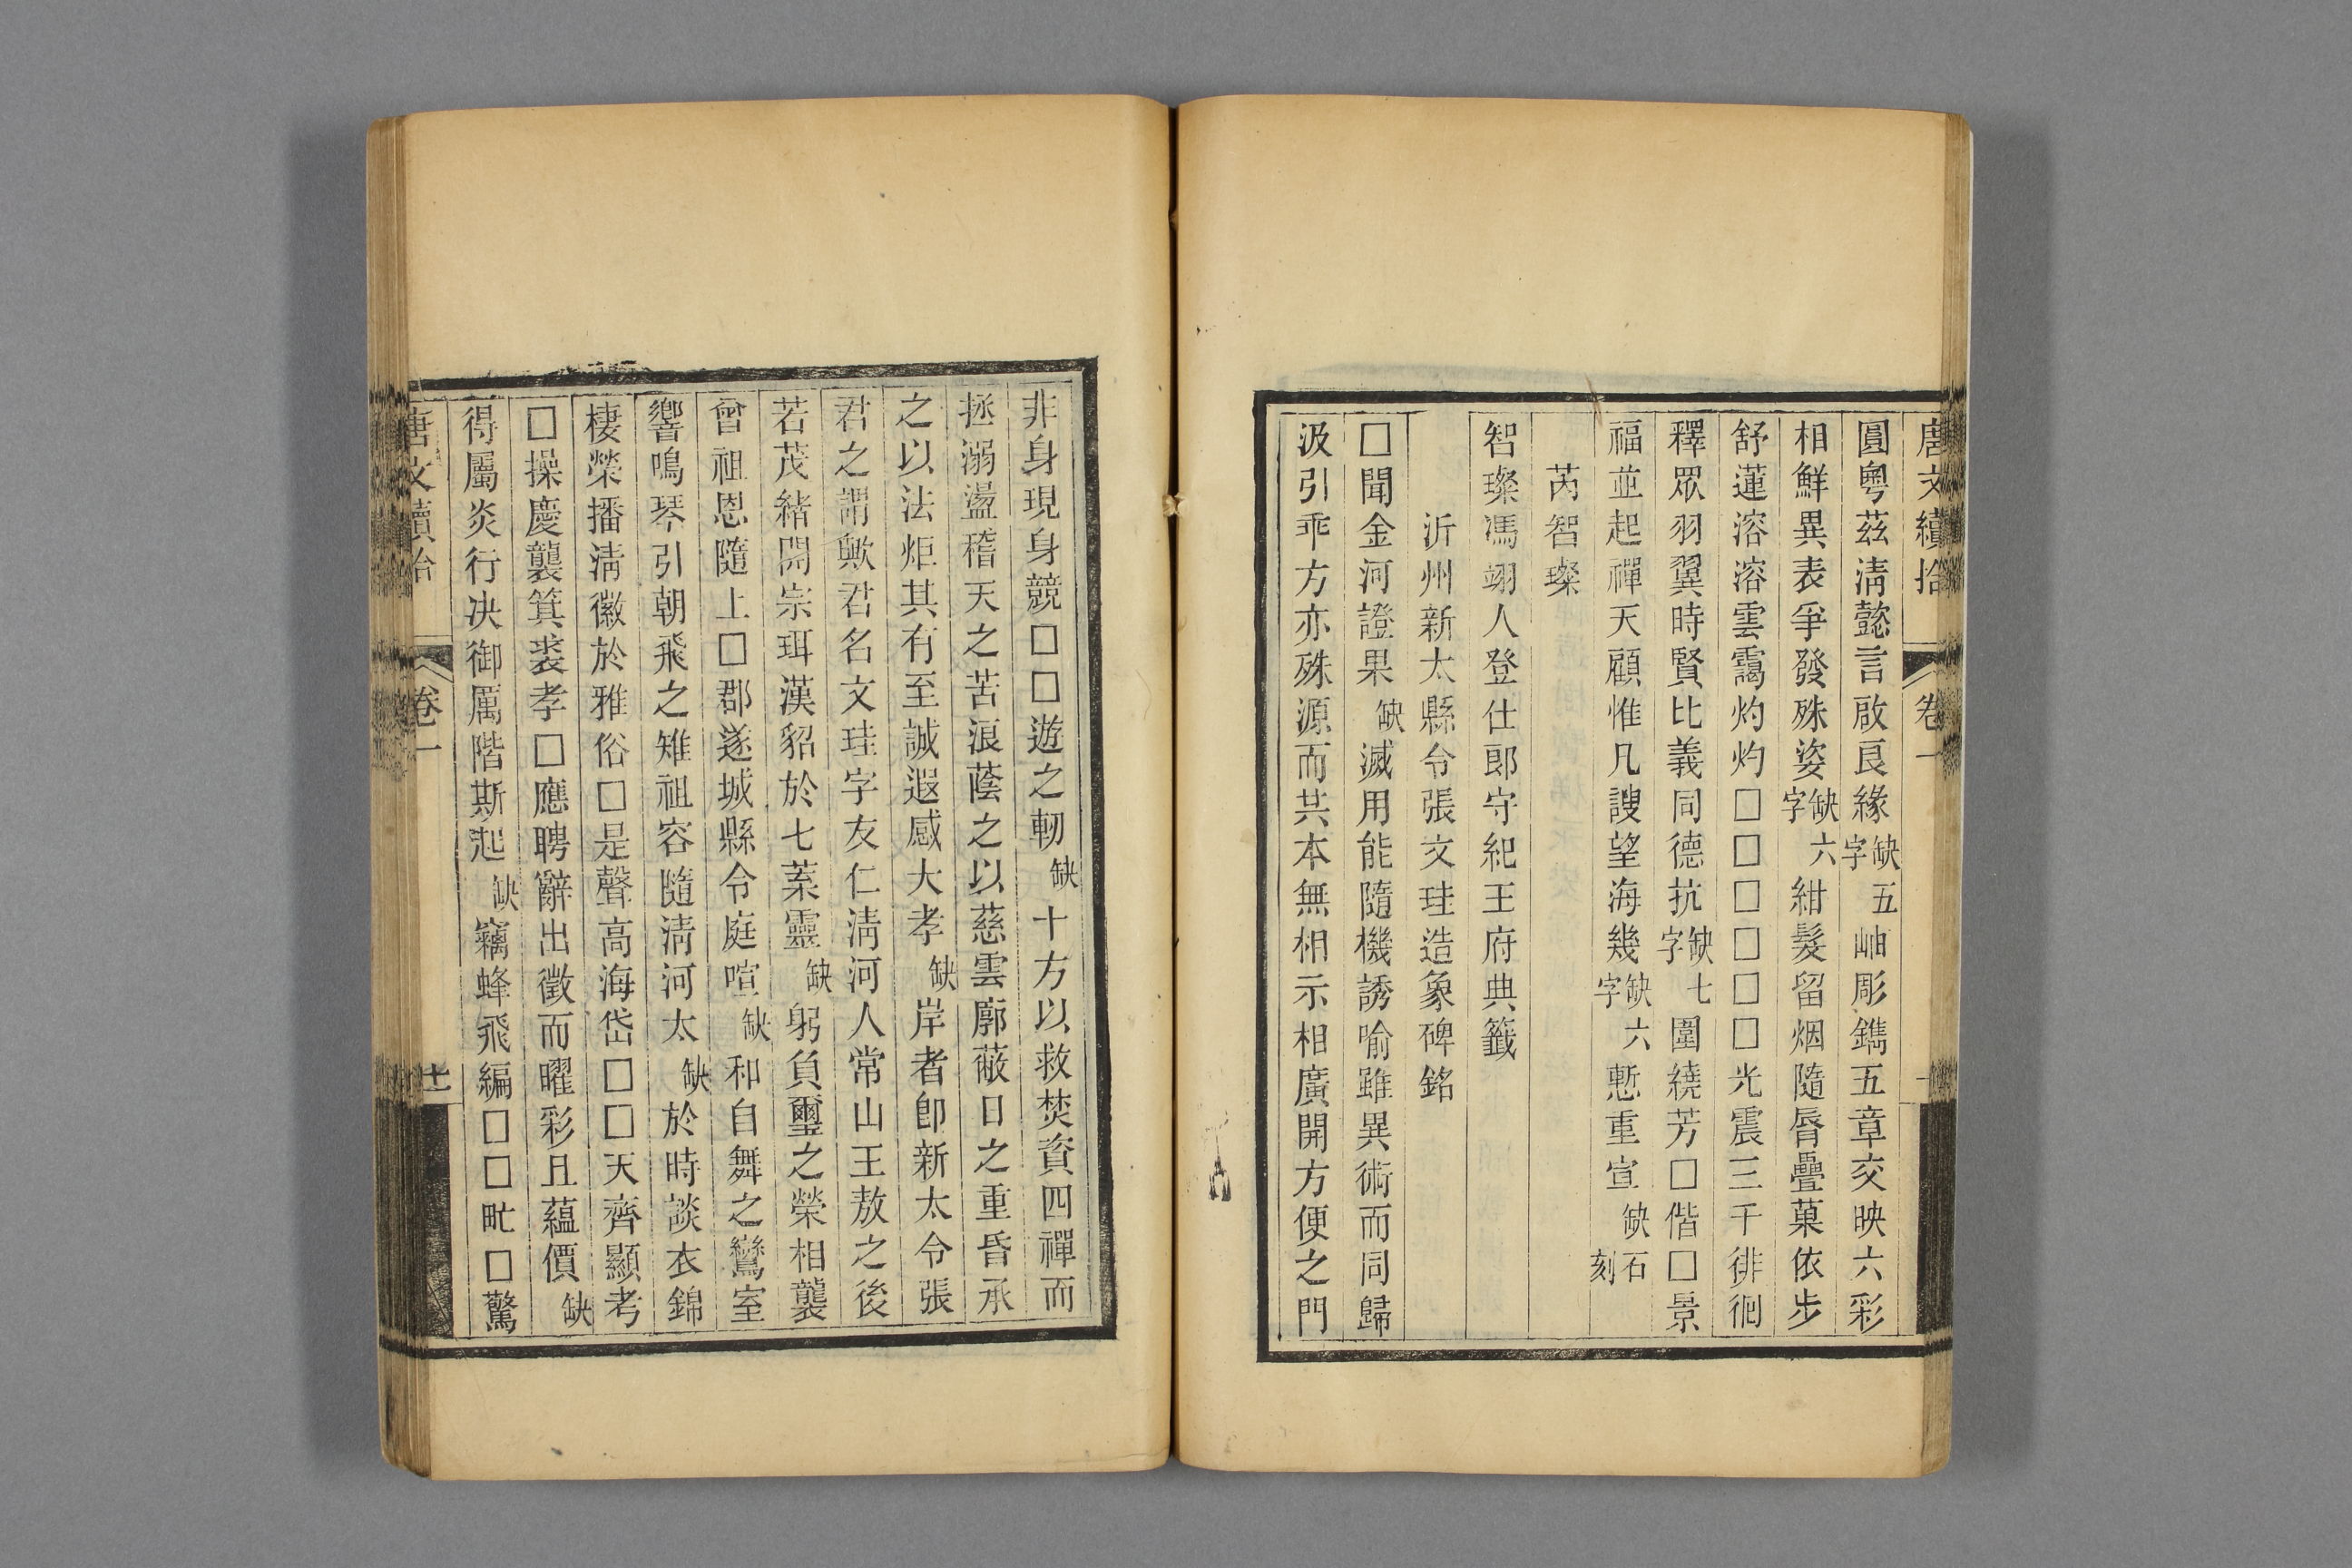 唐文續拾 卷一
圓粵茲淸懿言啟良緣缺五字岫彫鐫五章交映六彩
相鮮異表爭發殊姿缺六字紺髮留烟隨脣疊菓依步
舒蓮溶溶雲靄灼灼□□□□□□光震三千徘徊
釋眾羽翼時賢比義同德抗缺七字圍繞芳□偕□景
福並起禪天顧惟凡謏望海幾缺六字慙重宣缺石刻
芮智璨
智璨馮翊人登仕郎守紀王府典籤
沂州新太縣令張文珪造象碑銘
□聞金河證果缺滅用能隨機誘喻雖異術而同歸
汲引乖方亦殊源而共本無相示相廣開方便之門
非身現身競□□遊之軔缺十方以救焚資四禪而
拯溺盪稽天之苦浪蔭之以慈雲廓蔽日之重昏承
之以法炬其有至誠遐感大孝缺岸者卽新太令張
君之謂歟君名文珪字友仁淸河人常山王敖之後
若茂緒開宗珥漢貂於七葉靈缺躬負璽之榮相襲
曾祖恩隨上□郡遂城縣令庭喧缺和自舞之鸞室
響鳴琴引朝飛之雉祖容隨淸河太缺於時談衣錦
棲榮播淸徽於雅俗□是聲高海岱□□天齊顯考
□操慶襲箕裘孝□應聘辭出徵而曜彩丑蘊價缺
得屬炎行決御厲階斯起缺竊蜂飛編□□甿□驚
唐文續拾 卷一 十一